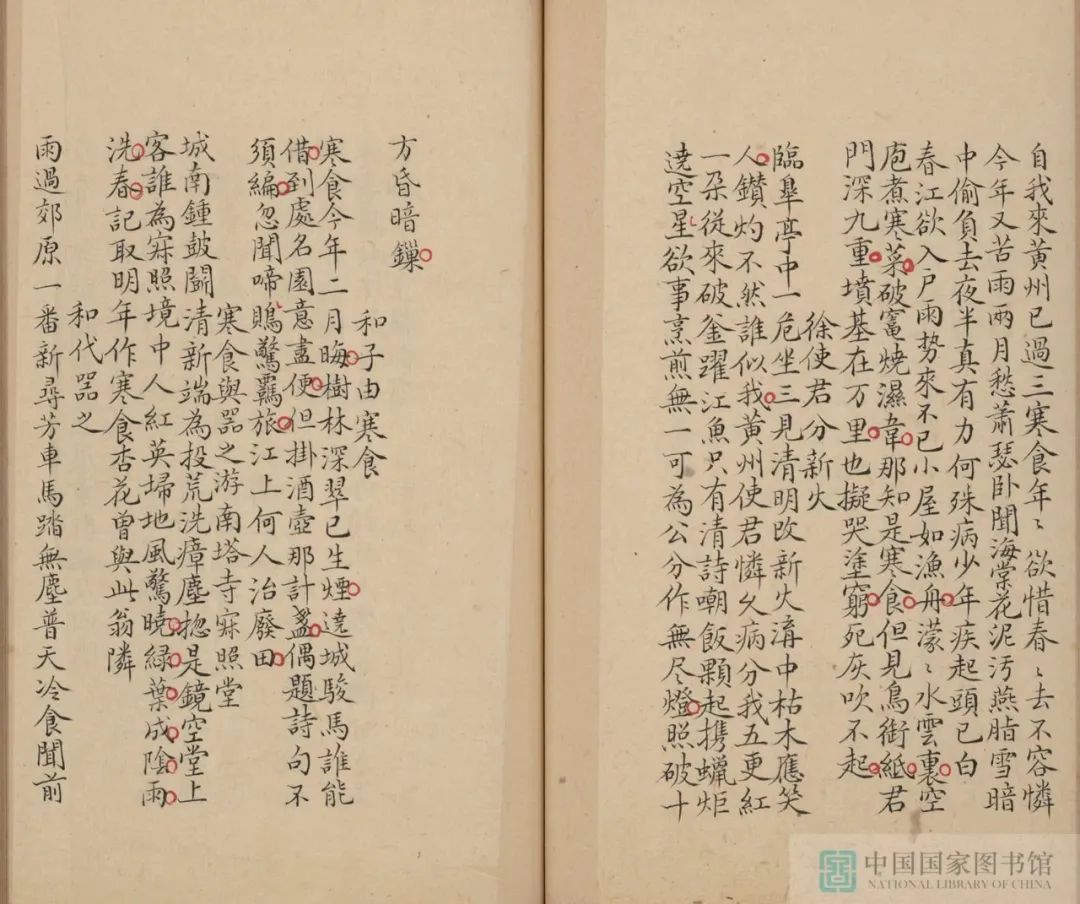 自我來黃州已過三寒食年〻欲惜春〻去不容憐
今年又苦雨兩月愁蕭瑟卧聞海棠花泥汚燕脂雪暗
中偷負去夜半真有力何殊病少年疾起頭已白
春江欲入戶雨勢來不已小屋如漁舟濛〻水雲裏空
庖煮寒菜破竈燒濕葦那知是寒食但見烏銜紙君
門深九重墳基在万里也擬哭塗窮死灰吹不起
徐使君分新火
臨臯亭中一危坐三見清明改新火溝中枯木應笑
人鑚灼不然誰似我黃州使君憐久病分我五更紅
一朵從來破釜躍江魚只有清詩嘲飯顆起携蠟炬
遶空星欲事烹煎無一可為公分作無尽燈照破十
方昏暗鏁
和子由寒食
寒食今年二月晦樹林深翠已生煙遶城駿馬誰能
借到處名園意盡便但掛酒壺那計盞偶題詩句不
須編忽聞啼鵙驚羈旅江上何人治廢田
寒食與器之游南塔寺寂照堂
城南鍾皷鬪清新端為投荒洗瘴塵揔是鏡空堂上
客誰為寂照境中人紅英埽地風驚曉綠葉成陰雨
洗春記取明年作寒食杏花曾與此翁隣
和代器之
雨過郊原一番新尋芳車馬踏無塵普天冷食聞前
中国国家图书馆
NATIONAL LIBRARY OF CHINA